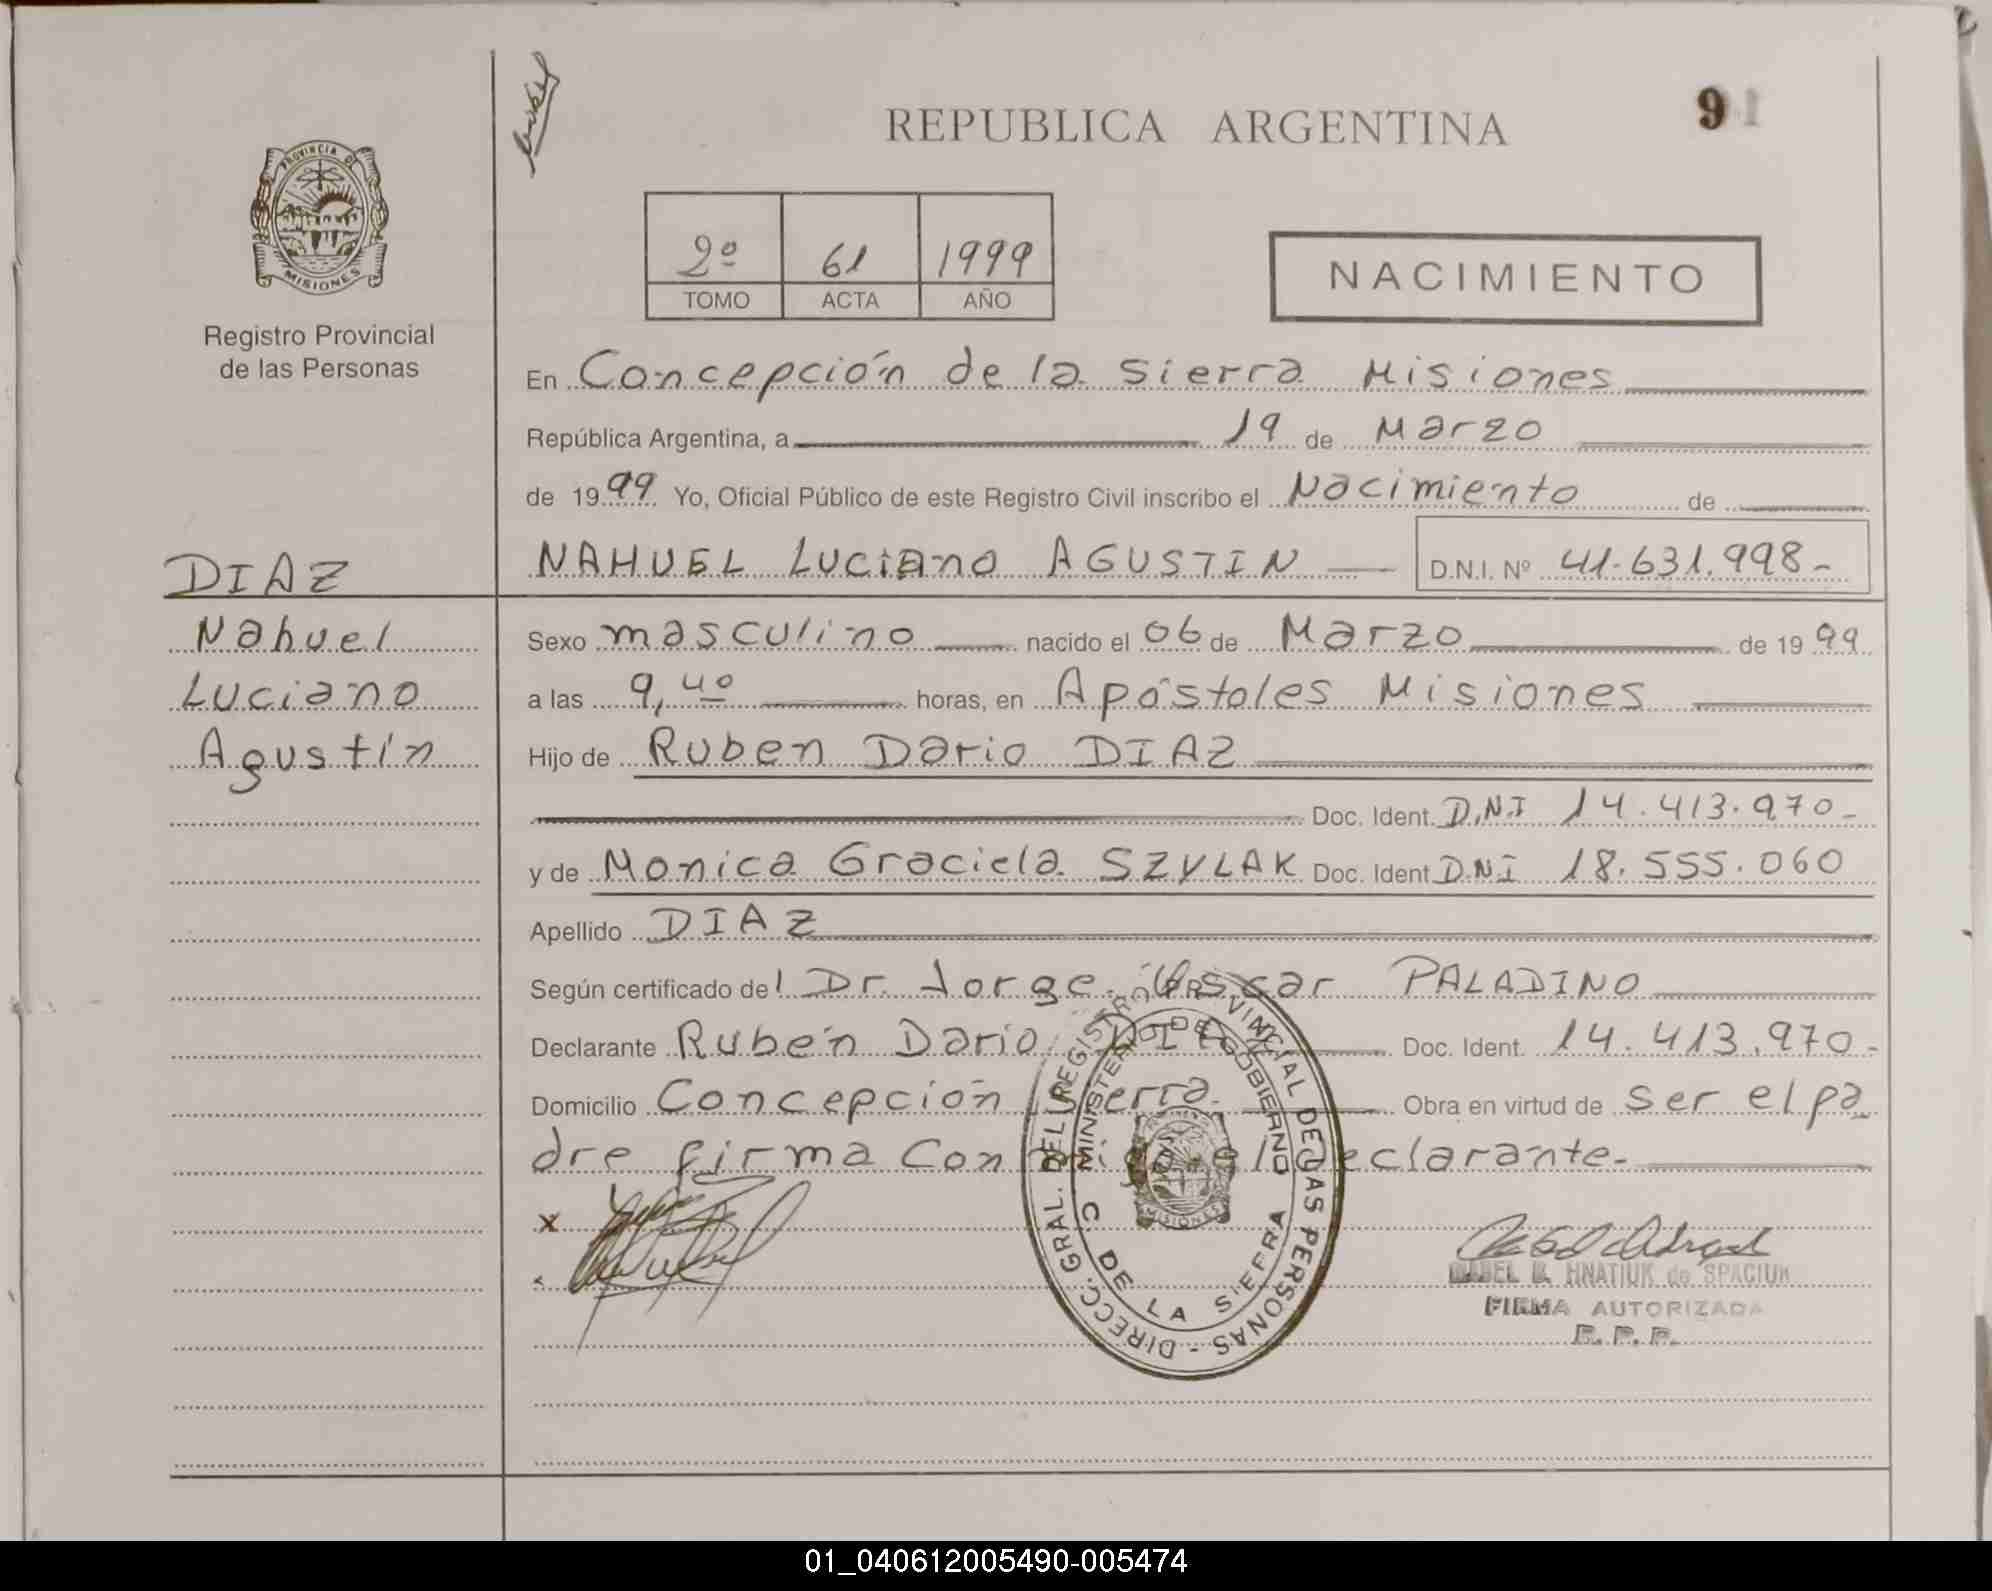 REPUBLICA ARGENTINA
91
PROVINCIA DE
MISIONES
Registro Provincial
de las Personas
2º 61 1999
TOMO ACTA AÑO
NACIMIENTO
En Concepción de la Sierra Misiones
República Argentina, a 19 de Marzo
de 1999 Yo, Oficial Público de este Registro Civil inscribo el Nacimiento de
NAHUEL Luciano AGUSTIN D.N.I. Nº 41.631.998-
DIAZ
Nahuel
Luciano
Agustín
Sexo masculino nacido el 06 de Marzo de 1999
a las 9,40 horas, en Apóstoles Misiones
Hijo de Ruben Dario DIAZ
Doc. Ident. D.N.I 14.413.970-
y de Monica Graciela SZYLAK Doc. Ident D.N.I 18.555.060
Apellido DIAZ
Según certificado del Dr. Jorge Oscar PALADINO
Declarante Rubén Dario DIAZ Doc. Ident. 14.413.970-
Domicilio Concepción Sierra Obra en virtud de ser el pa
dre firma Conmigo el declarante-
x
DIRECC. GRAL. DEL REGISTRO PROVINCIAL DE LAS PERSONAS -
MINISTERIO DE GOBIERNO
C DE LA SIERRA
MISIONES
HNATIUK de SPACIUK
FIRMA AUTORIZADA
R. P. P.
01_040612005490-005474